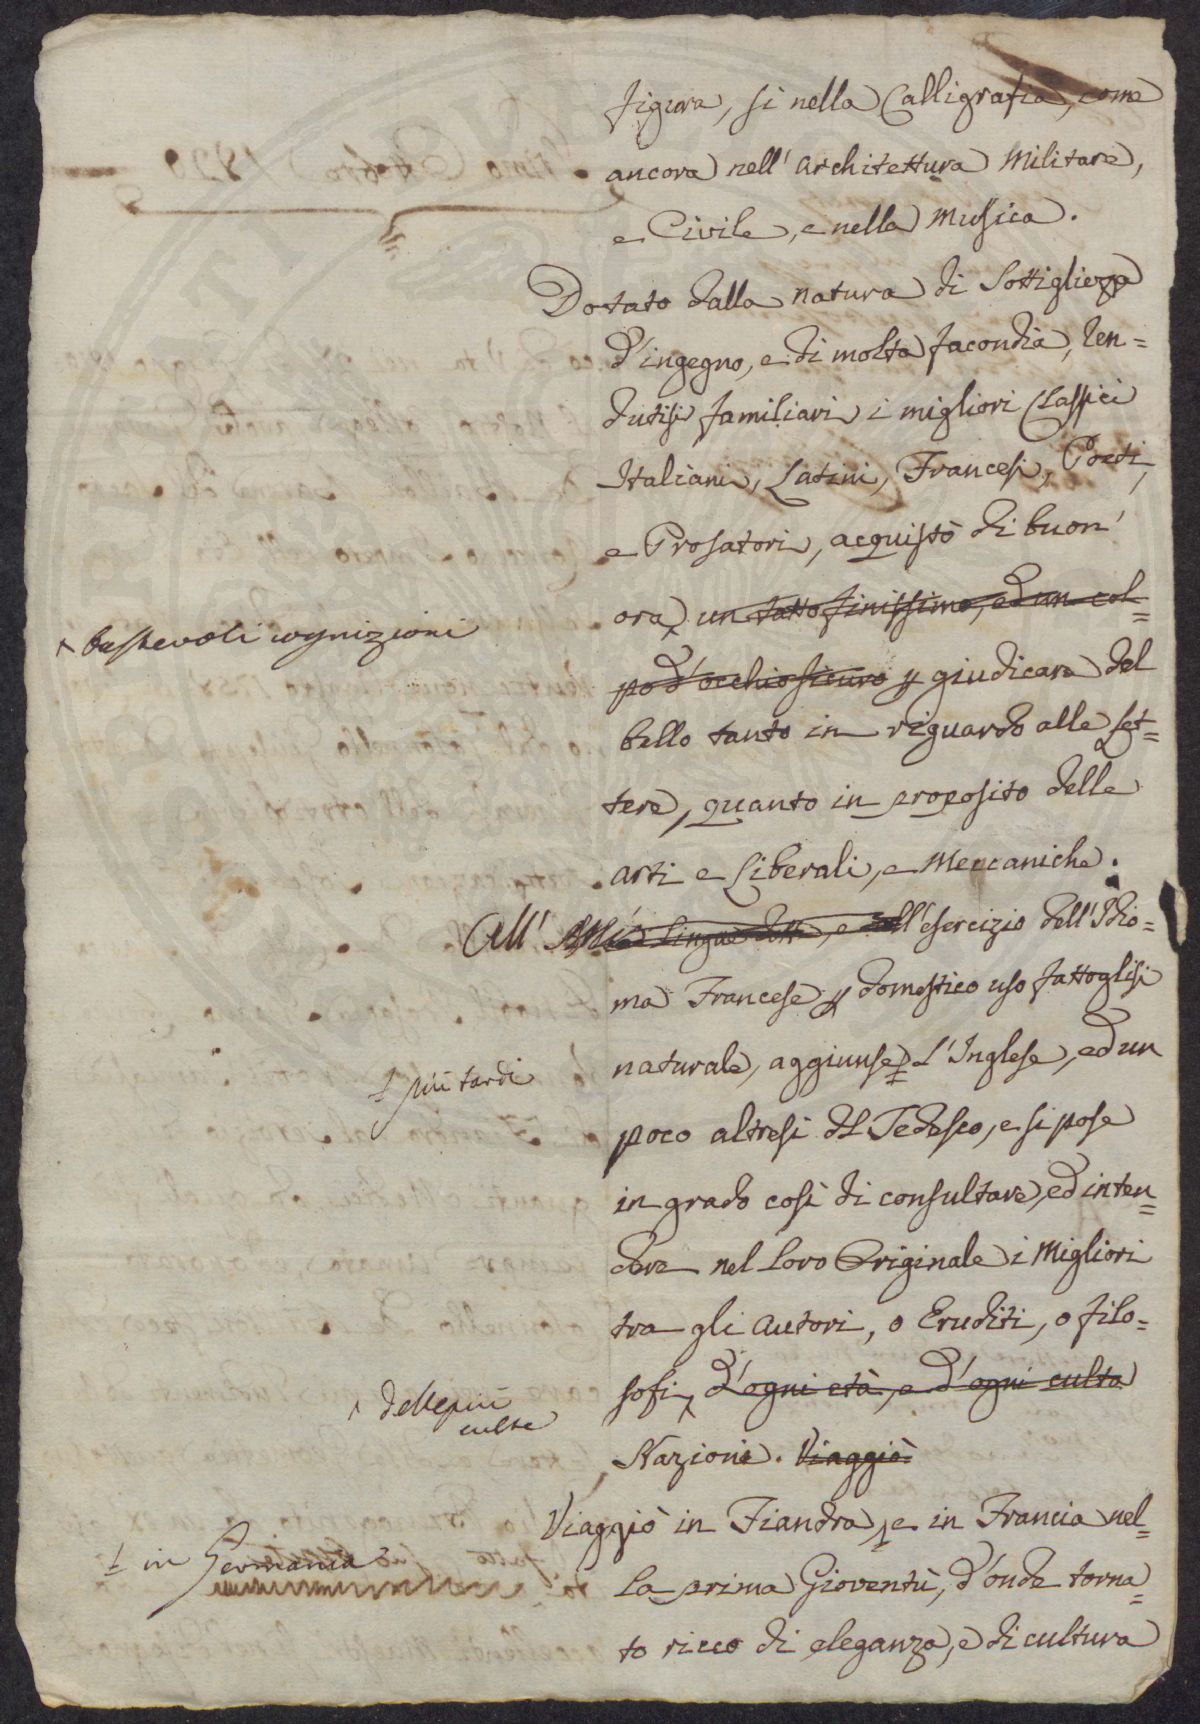 figura, sì nella Calligrafia, come
ancora nell' Architettura Militare,
e Civile, e nella Musica.
Dotato dalla natura di Sottigliezza
d'ingegno, e di molta facondia, ren=
dutisi familiari i migliori Classici
Italiani, Latini, Francesi, Poeti,
e Prosatori, acquistò di buon'
ora, un tatto finissimo, ed un col=
^ bastevoli cognizioni
po d'occhio sicuro p giudicare del
bello tanto in riguardo alle Let=
tere, quanto in proposito delle
arti e Liberali, e Meccaniche.
All' Lingue dotte, e all'esercizio dell'Idio=
ma Francese p domestico uso fattoglisi
naturale, aggiunse L'Inglese, ed un
più tardi
poco altresì del Tedesco, e si pose
in grado così di consultare, ed inten=
dere nel Loro Originale i Migliori
tra gli Autori, o Eruditi, o filo=
sofi, d'ogni età, e d'ogni culta
^ delle più
culte
Nazioni. Viaggiò
Viaggiò in Fiandra, e in Francia nel=
in Germania
la prima Gioventù, d'onde torna=
to ricco di eleganza, e di cultura